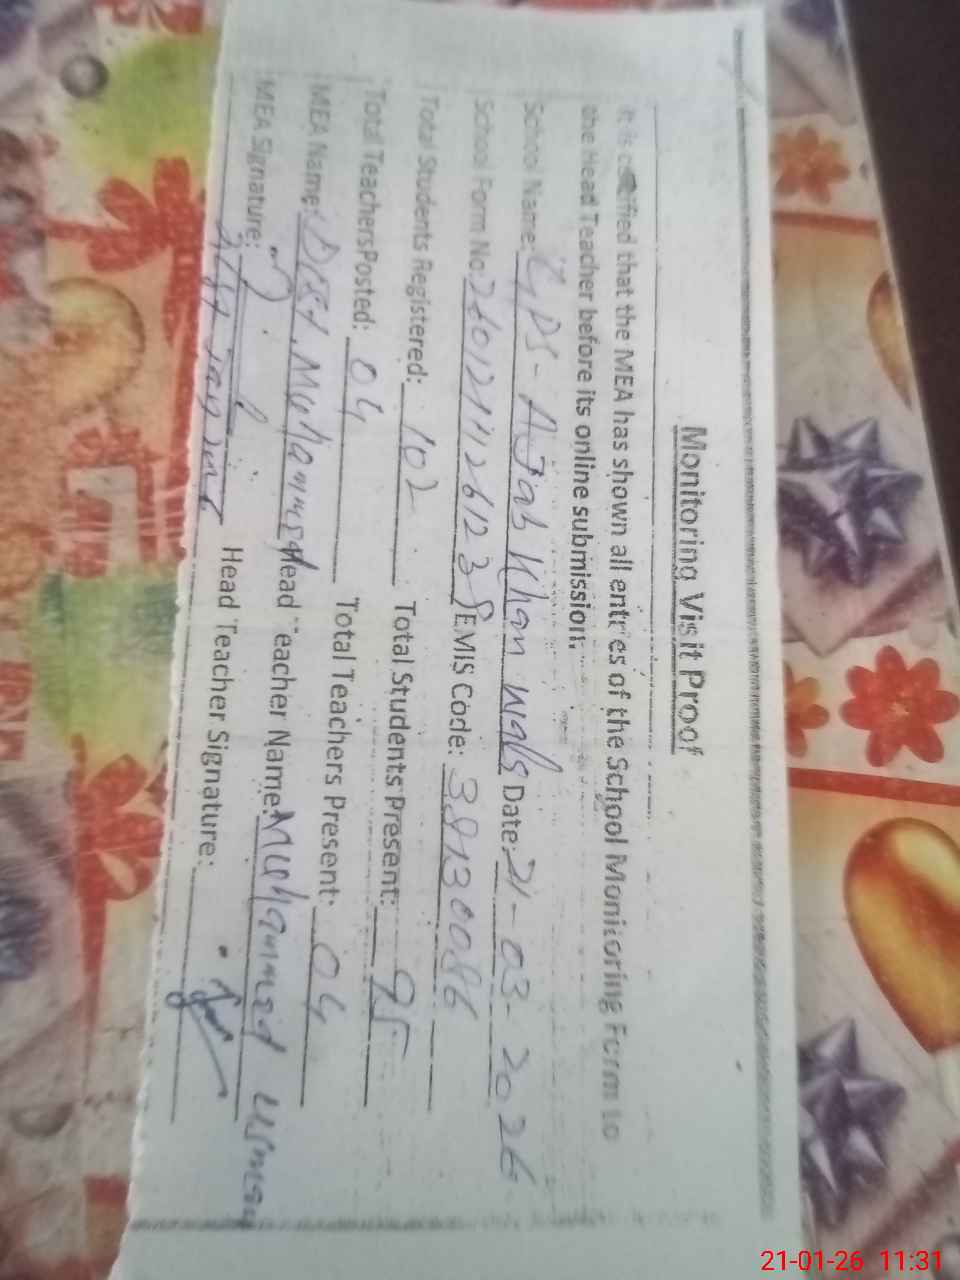 Monitoring Visit Proof
It is certified that the MEA has shown all entries of the School Monitoring Form to
the Head Teacher before its online submission.
School Name: GPS- AJab Khan Wals Date: 21-03-2026
School Form No: EMIS Code: 38130086
Total Students Registered: 102 Total Students Present: 95
Total TeachersPosted: 04 Total Teachers Present: 04
MEA Name: Muhammed Head Teacher Name: Muhammed Usman
MEA Signature: Head Teacher Signature:
21-01-26 11:31